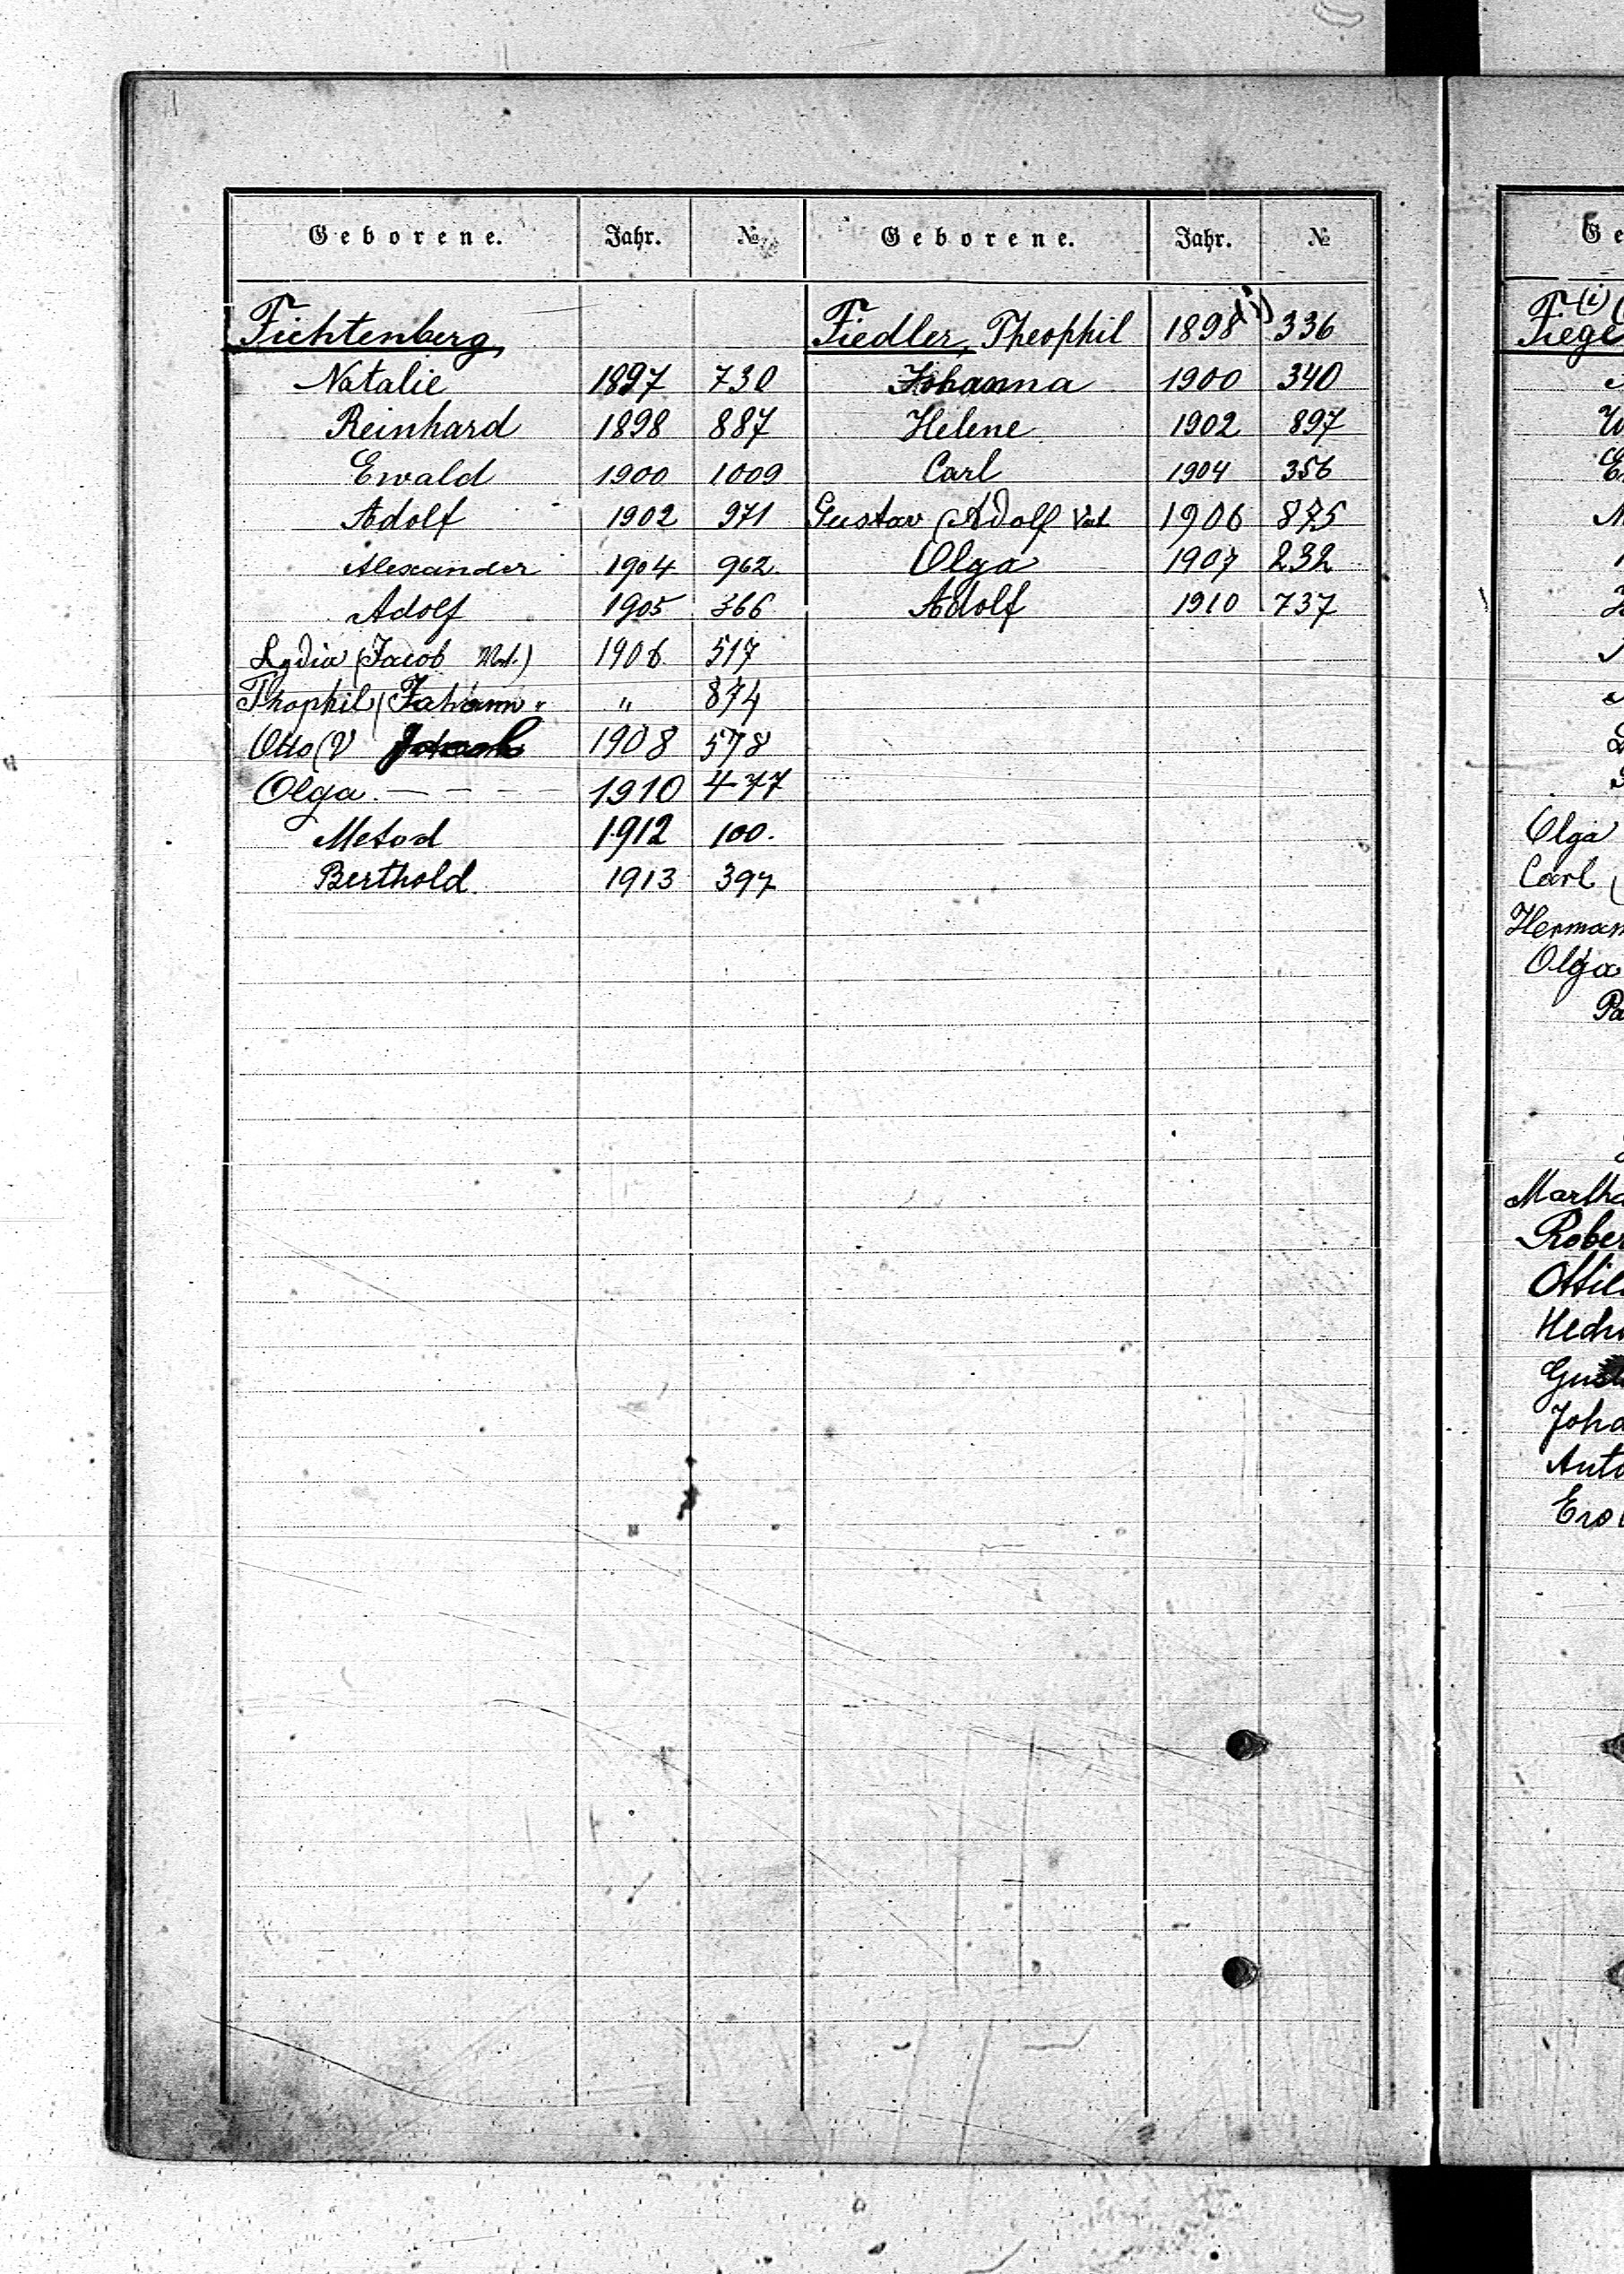 Geborene. Jahr. № Geborene. Jahr. №
Fichtenberg
Natalie 1897 730
Reinhard 1898 887
Ewald 1900 1009
Adolf 1902 971
Alexander 1904 962.
Adolf 1905 366
Lydia (Jacob Vat.) 1906 517
Thophil (Johann " " 874
Otto (V 1908 578
Olga. — – – – 1910 477
Metod 1912 100.
Berthold. 1913 397
Fiedler, Theophil 1898 336
Johanna 1900 340
Helene 1902 897
Carl 1904 356
Gustav (Adolf Vat. 1906 875
Olga 1907 232
Adolf 1910 737
Ge
(i)
Fiege
Olga
Carl (
Herman
Olga
Pa
Martha
Rober
Ottil
Hedw
Gust
Joha
Anto